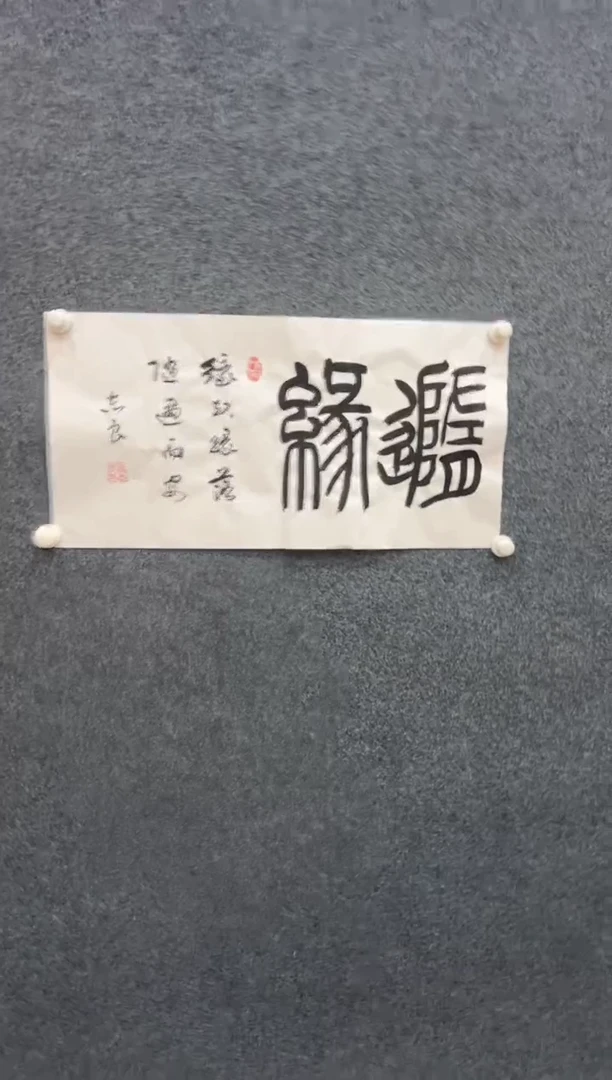 隨緣
緣起緣落
隨遇而安
志良